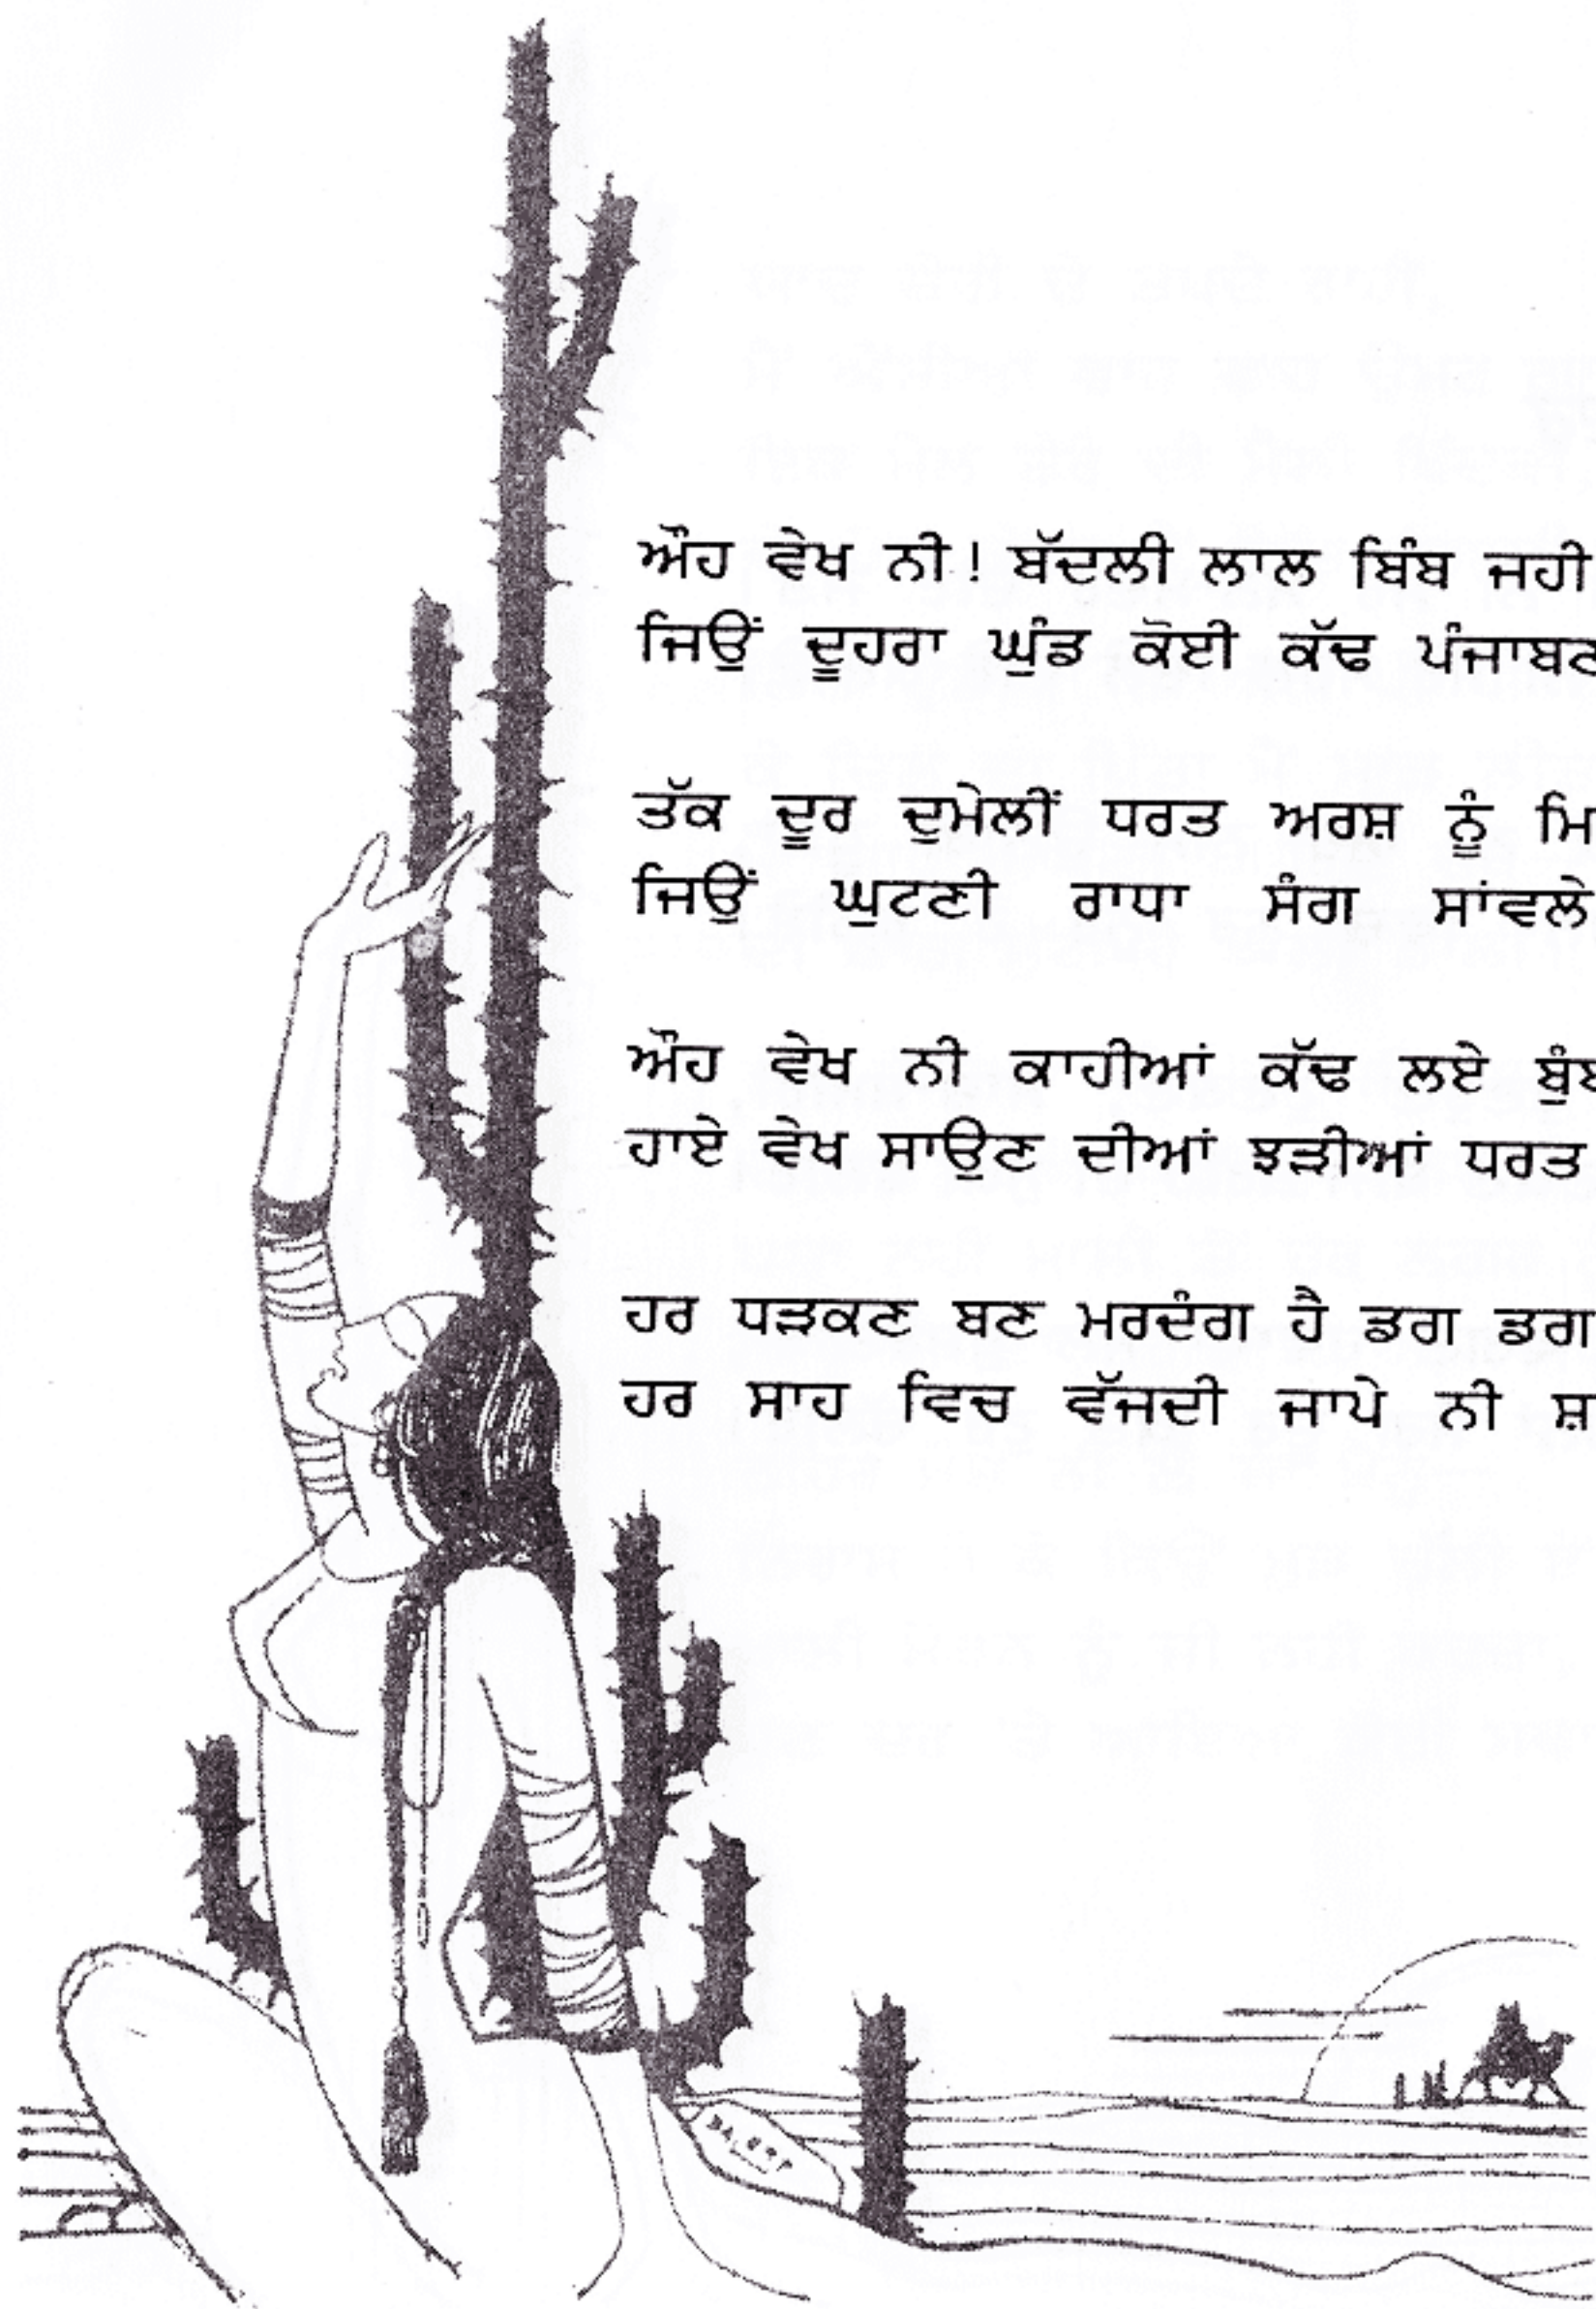 ਔਹ ਵੇਖ ਨੀ! ਬੱਦਲੀ ਲਾਲ ਬਿੰਬ ਜਹੀ
ਜਿਉਂ ਦੂਹਰਾ ਘੁੰਡ ਕੋਈ ਕੱਢ ਪੰਜਾਬਣ
ਤੱਕ ਦੂਰ ਦੁਮੇਲੀਂ ਧਰਤ ਅਰਸ਼ ਨੂੰ ਮਿ
ਜਿਉਂ ਘੁਟਣੀ ਰਾਧਾ ਸੰਗ ਸਾਂਵਲੇ
ਔਹ ਵੇਖ ਨੀ ਕਾਹੀਆਂ ਕੱਢ ਲਏ
ਹਾਏ ਵੇਖ ਸਾਉਣ ਦੀਆਂ ਝੜੀਆਂ ਧਰਤ
ਹਰ ਧੜਕਣ ਬਣ ਮਰਦੰਗ ਹੈ ਡਗ ਡਗ
ਹਰ ਸਾਹ ਵਿਚ ਵੱਜਦੀ ਜਾਪੇ ਨੀ